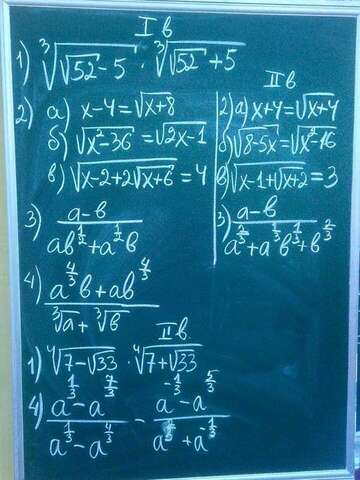 I в
1) ∛(√52 - 5) · ∛(√52 + 5)
2) а) x-4=√(x+8)
б) √(x²-36) = √(2x-1)
в) √(x-2+2√(x+6)) = 4
3) (a-b)/(ab^(1/2)+a^(1/2)b)
4) (a^(4/3)b+ab^(4/3))/(∛a+∛b)
II в
2) а) x+4=√(x+4)
б) √(8-5x)=√(x²-16)
в) √(x-1+√(x+2)) = 3
3) (a-b)/(a^(2/3)+a^(1/3)b^(1/3)+b^(2/3))
II в
1) ∜(7-√33) · ∜(7+√33)
4) (a^(1/3)-a^(7/3))/(a^(1/3)-a^(4/3)) - (a^(-1/3)-a^(5/3))/(a^(2/3)+a^(-1/3))